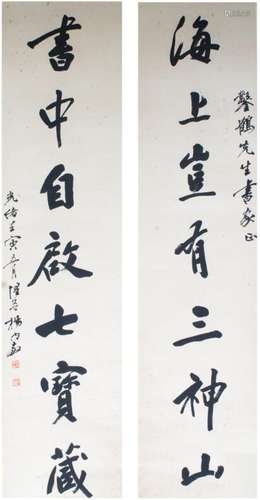 海上豈有三神山
鶴先生書家正
書中自啟七寶藏
光緒壬寅月惺吾楊守敬